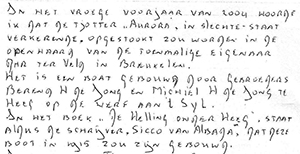 In het vroege voorjaar van 2004 hoorde
ik dat de tjotter „Aurora", in slechte-staat
verkerende, opgestookt zou worden in de
openhaard van de toenmalige eigenaar
dhr ter Veld in Breukelen.
Het is een boat gebouwd door gebroeders
Berend H de Jong en Michiel H de Jong te
Heeg op de werf aan 't Syl.
In het boek „De Helling onder Heeg", staat
aldus de schrijver, Sicco van Albada, dat deze
boot in 1915 zou zijn gebouwd.